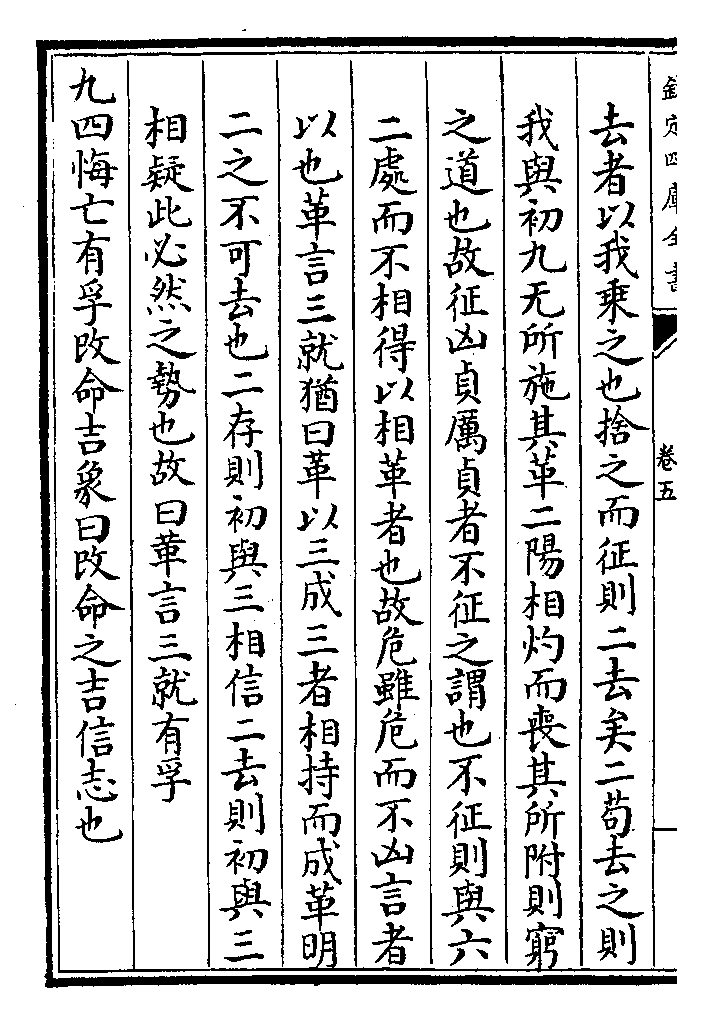 欽定四庫全書
卷五
去者以我乘之也捨之而征則二去矣二苟去之則
我與初九无所施其革二陽相灼而喪其所附則窮
之道也故征凶貞厲貞者不征之謂也不征則與六
二處而不相得以相革者也故危雖危而不凶言者
以也革言三就猶曰革以三成三者相持而成革明
二之不可去也二存則初與三相信二去則初與三
相疑此必然之勢也故曰革言三就有孚
九四悔亡有孚改命吉象曰改命之吉信志也